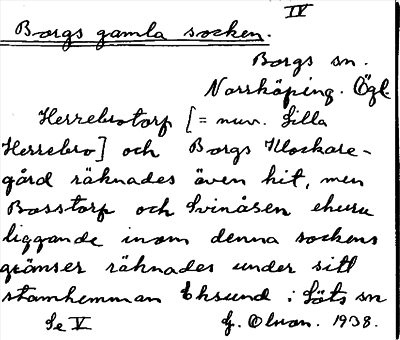 IV
Borgs gamla socken.
Borgs sn.
Norrköping. Ögl.
Herrebrotorp [= nuv. Lilla
Herrebro] och Borgs Klockare-
gård räknades även hit, men
Bosstorp och Svinåsen ehuru
liggande inom denna sockens
gränser räknades under sitt
stamhemman Eksund i Löts sn
Se V G. Olson. 1938.